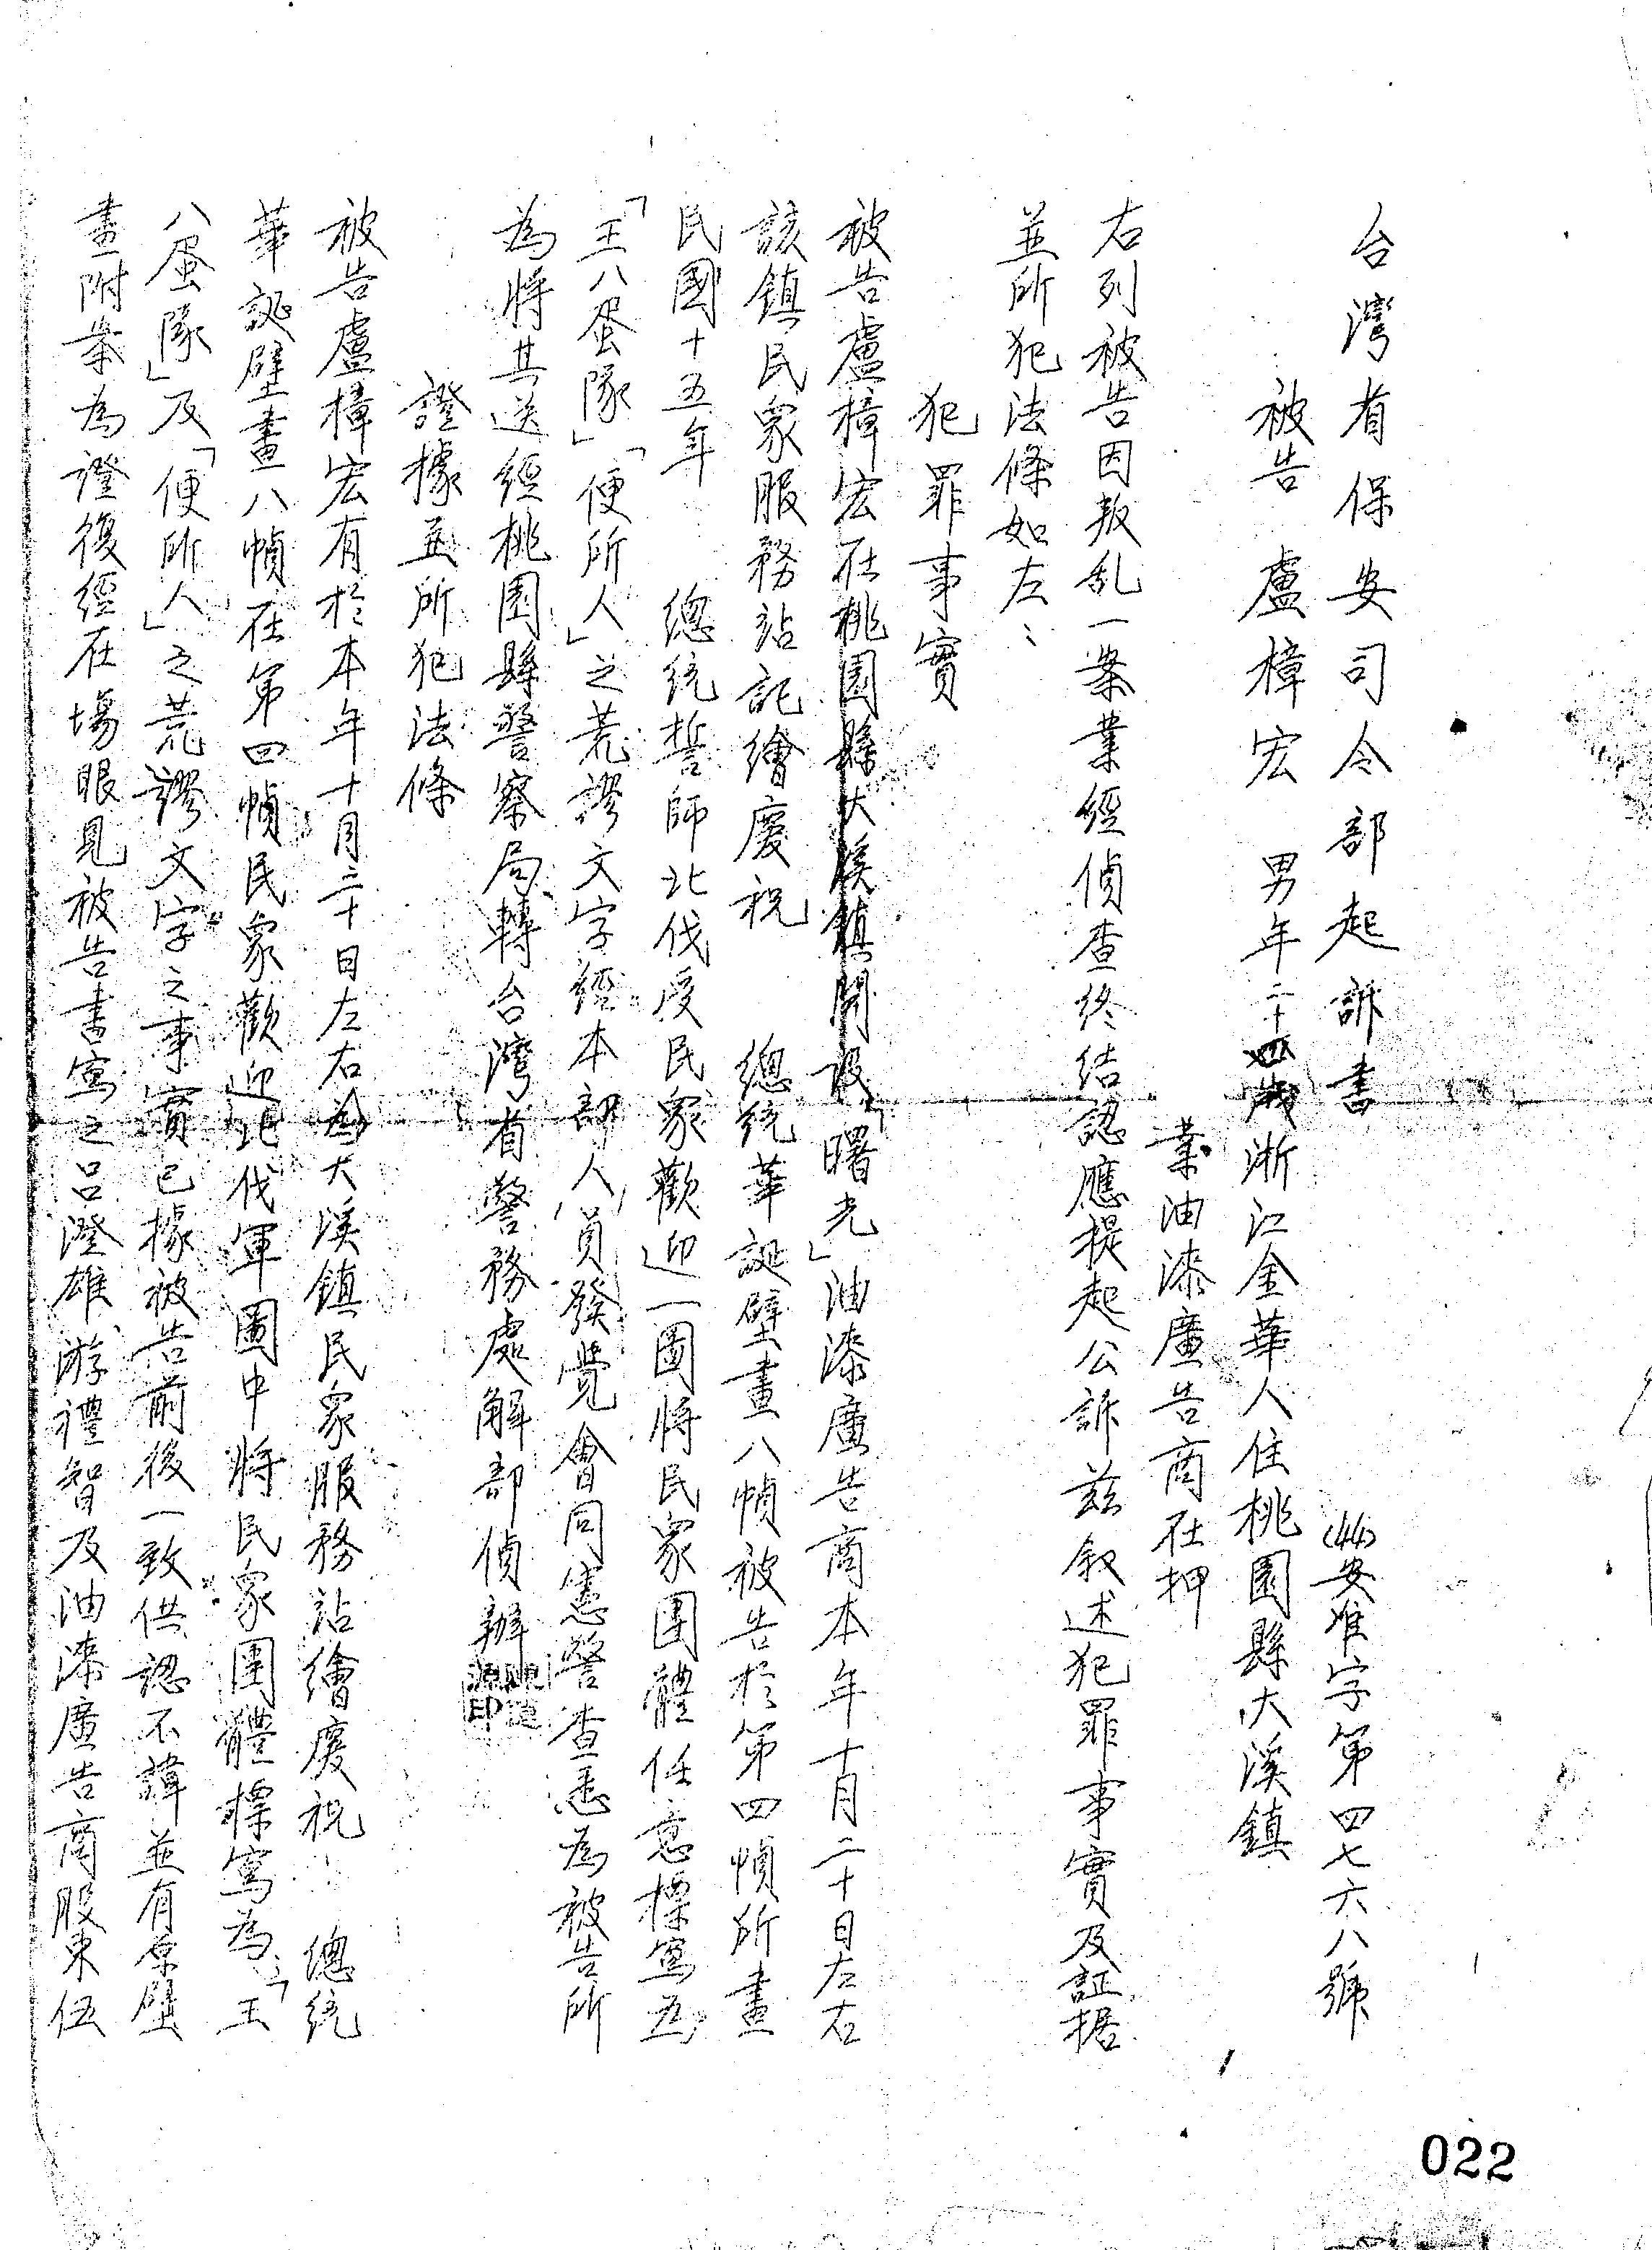 台灣省保安司令部起訴書
(44)安准字第四七六八號
被告 盧樟宏 男年二十四歲浙江金華人住桃園縣大溪鎮
業油漆廣告商在押
右列被告因叛乱一案業經偵查終結認應提起公訴兹叙述犯罪事實及証据
並所犯法條如左：
犯罪事實
被告盧樟宏在桃園縣大溪鎮開設「曙光」油漆廣告商本年十月二十日左右
該鎮民眾服務站託繪慶祝 總統華誕壁畫八幀被告於第四幀所畫
民國十五年 總統誓師北伐受民眾歡迎一圖將民眾團體任意標寫為
「王八蛋隊」「便所人」之荒謬文字經本部人員發覺會同憲警查悉為被告所
為將其送經桃園縣警察局轉台灣省警務處解部偵辦
證據並所犯法條
被告盧樟宏有於本年十月二十日左右為大溪鎮民眾服務站繪慶祝 總統
華誕壁畫八幀在第四幀民眾歡迎北伐軍圖中將民眾團體標寫為「王
八蛋隊」及「便所人」之荒謬文字之事實已據被告前後一致供認不諱並有原壁
畫附案為證復經在場眼見被告書寫之呂澄雄游禮智及油漆廣告商股東伍
022